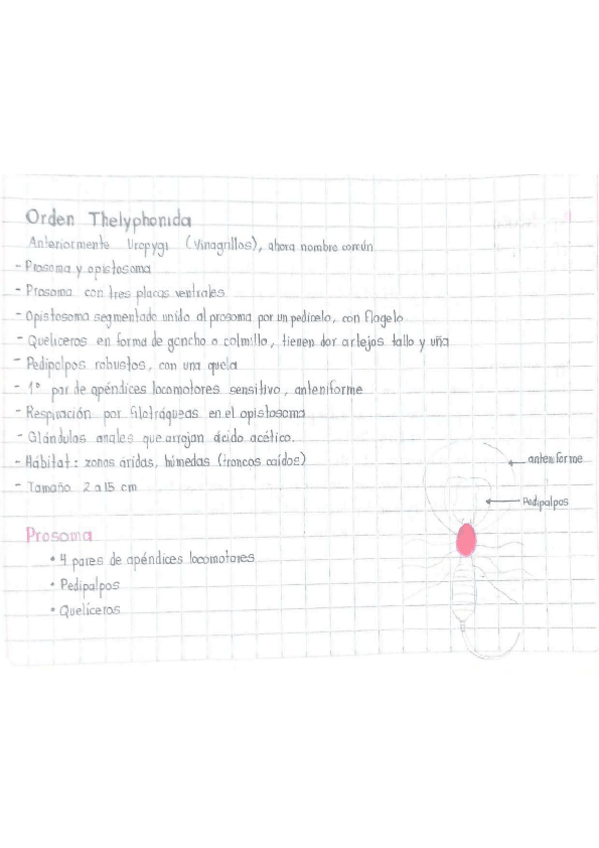 Orden Thelyphonida
Anteriormente Uropygi (Vinagrillos), ahora nombre común
- Prosoma y opistosoma
- Prosoma con tres placas ventrales
- Opistosoma segmentado unido al prosoma por un pedicelo, con flagelo
- Queliceros en forma de gancho o colmillo, tienen dor artejos tallo y uña
- Pedipalpos robustos, con una quela
- 1° par de apéndices locomotores sensitivo, anteniforme
- Respiración por filotráqueas en el opistosoma
- Glándulas anales que arrojan ácido acético.
- Hábitat: zonas áridas, húmedas (troncos caídos)
- Tamaño 2 a 15 cm
anteniforme
Pedipalpos
Prosoma
• 4 pares de apéndices locomotores
• Pedipalpos
• Quelíceros